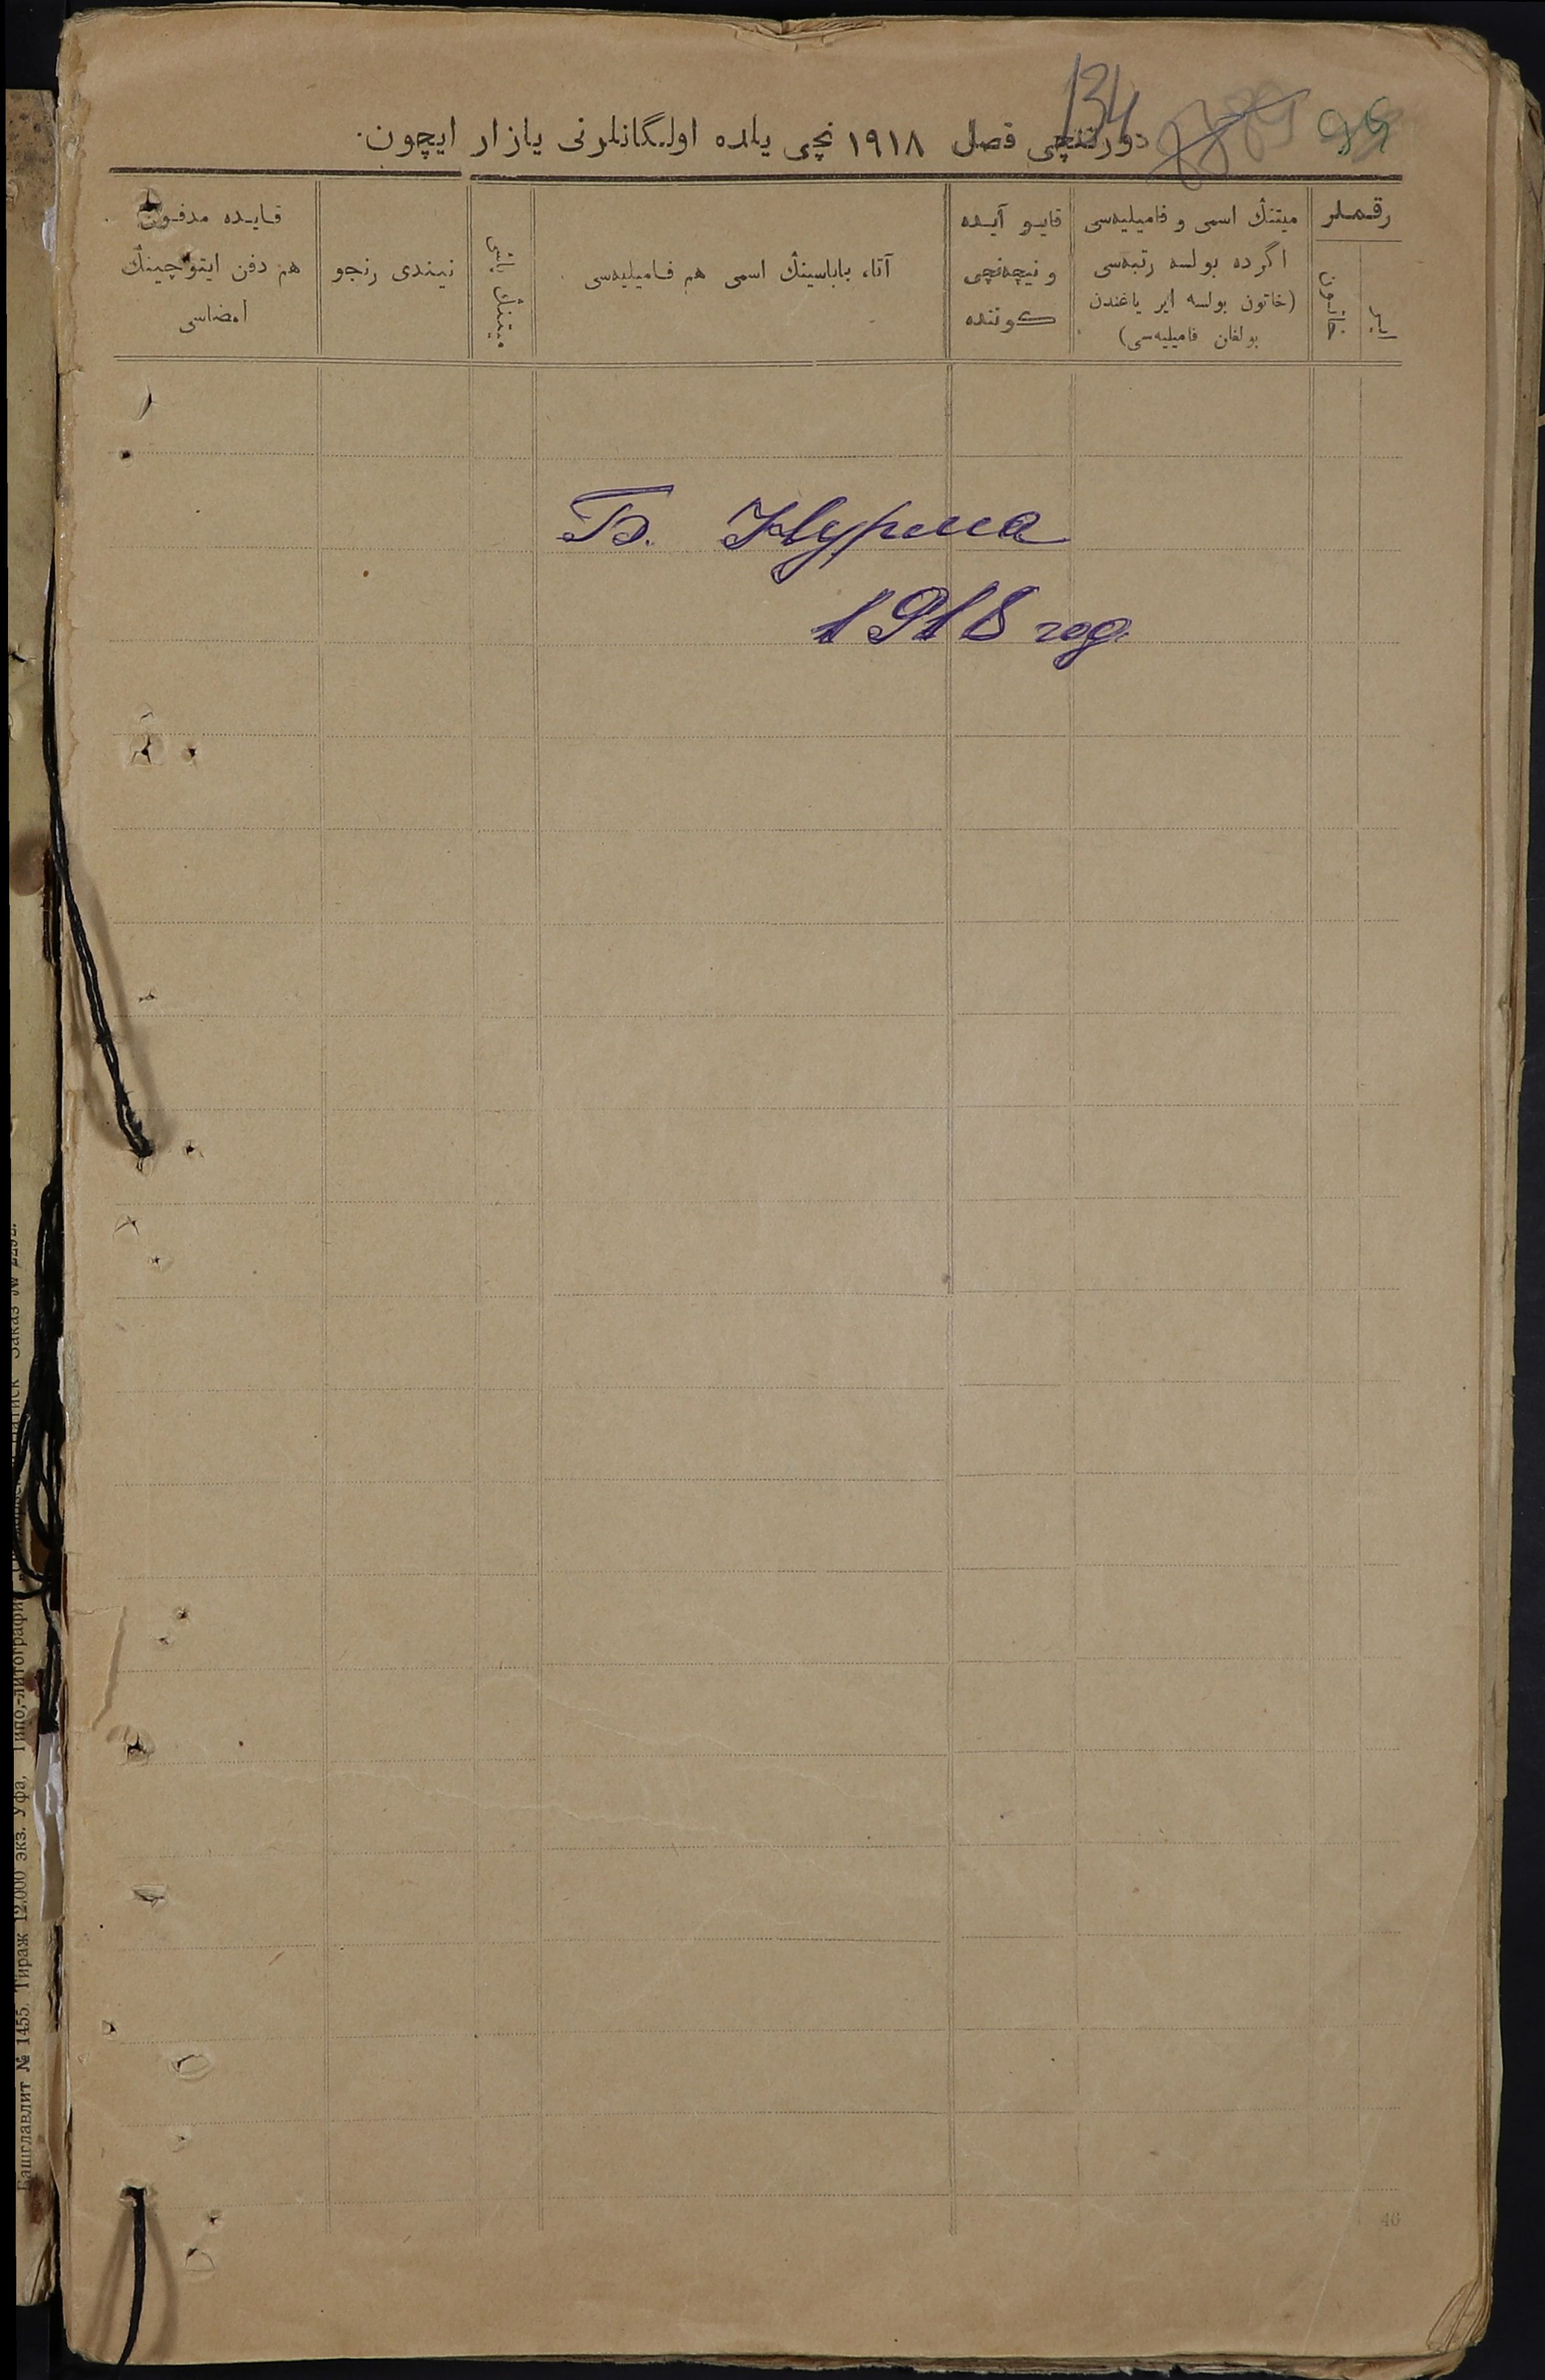 134
99
دورتنچی فصل ۱۹۱۸ نچی یلده اولگانلرنی یازار ایچون.
رقملر
ایر
خاتون
میتنڭ اسمی و فامیلیه‌سی
اگر ده بولسه رتبه‌سی
(خاتون بولسه ایر یاغندن
بولغان فامیلیه‌سی)
قایو آیده
و نیچه‌نچی
کوننده
آتا، باباسینڭ اسمی هم فامیلیه‌سی
میتنڭ یاشی
نیندی رنجو
قایده مدفون
هم دفن ایتوچینڭ
امضاسی
Б. Нурма
1918 год
46
Башглавлит № 1455. Тираж 12.000 экз. Уфа, Типо-литография
Заказ №